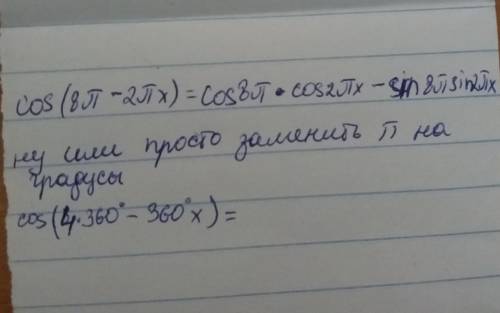 cos(8π - 2πx) = cos8π · cos2πx - sin8πsin2πx
ну или просто заменить π на
градусы
cos(4·360° - 360°x) =